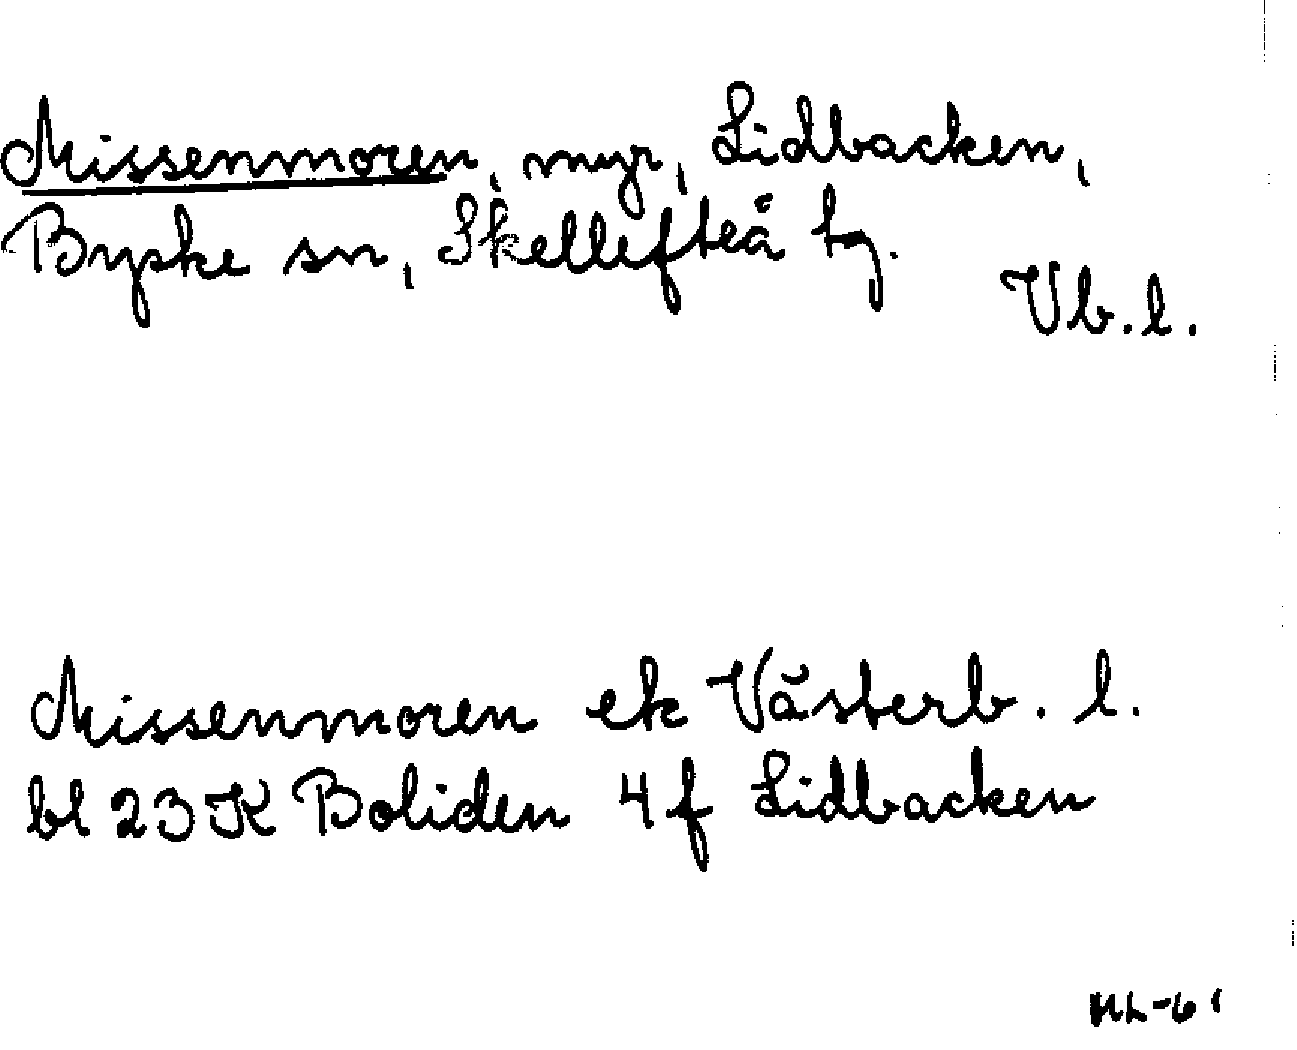 Missenmoren, myr, Lidbacken,
Byske sn, Skellefteå tg.
Vb.l.
Missenmoren ek Västerb. l.
bl 23K Boliden 4f Lidbacken